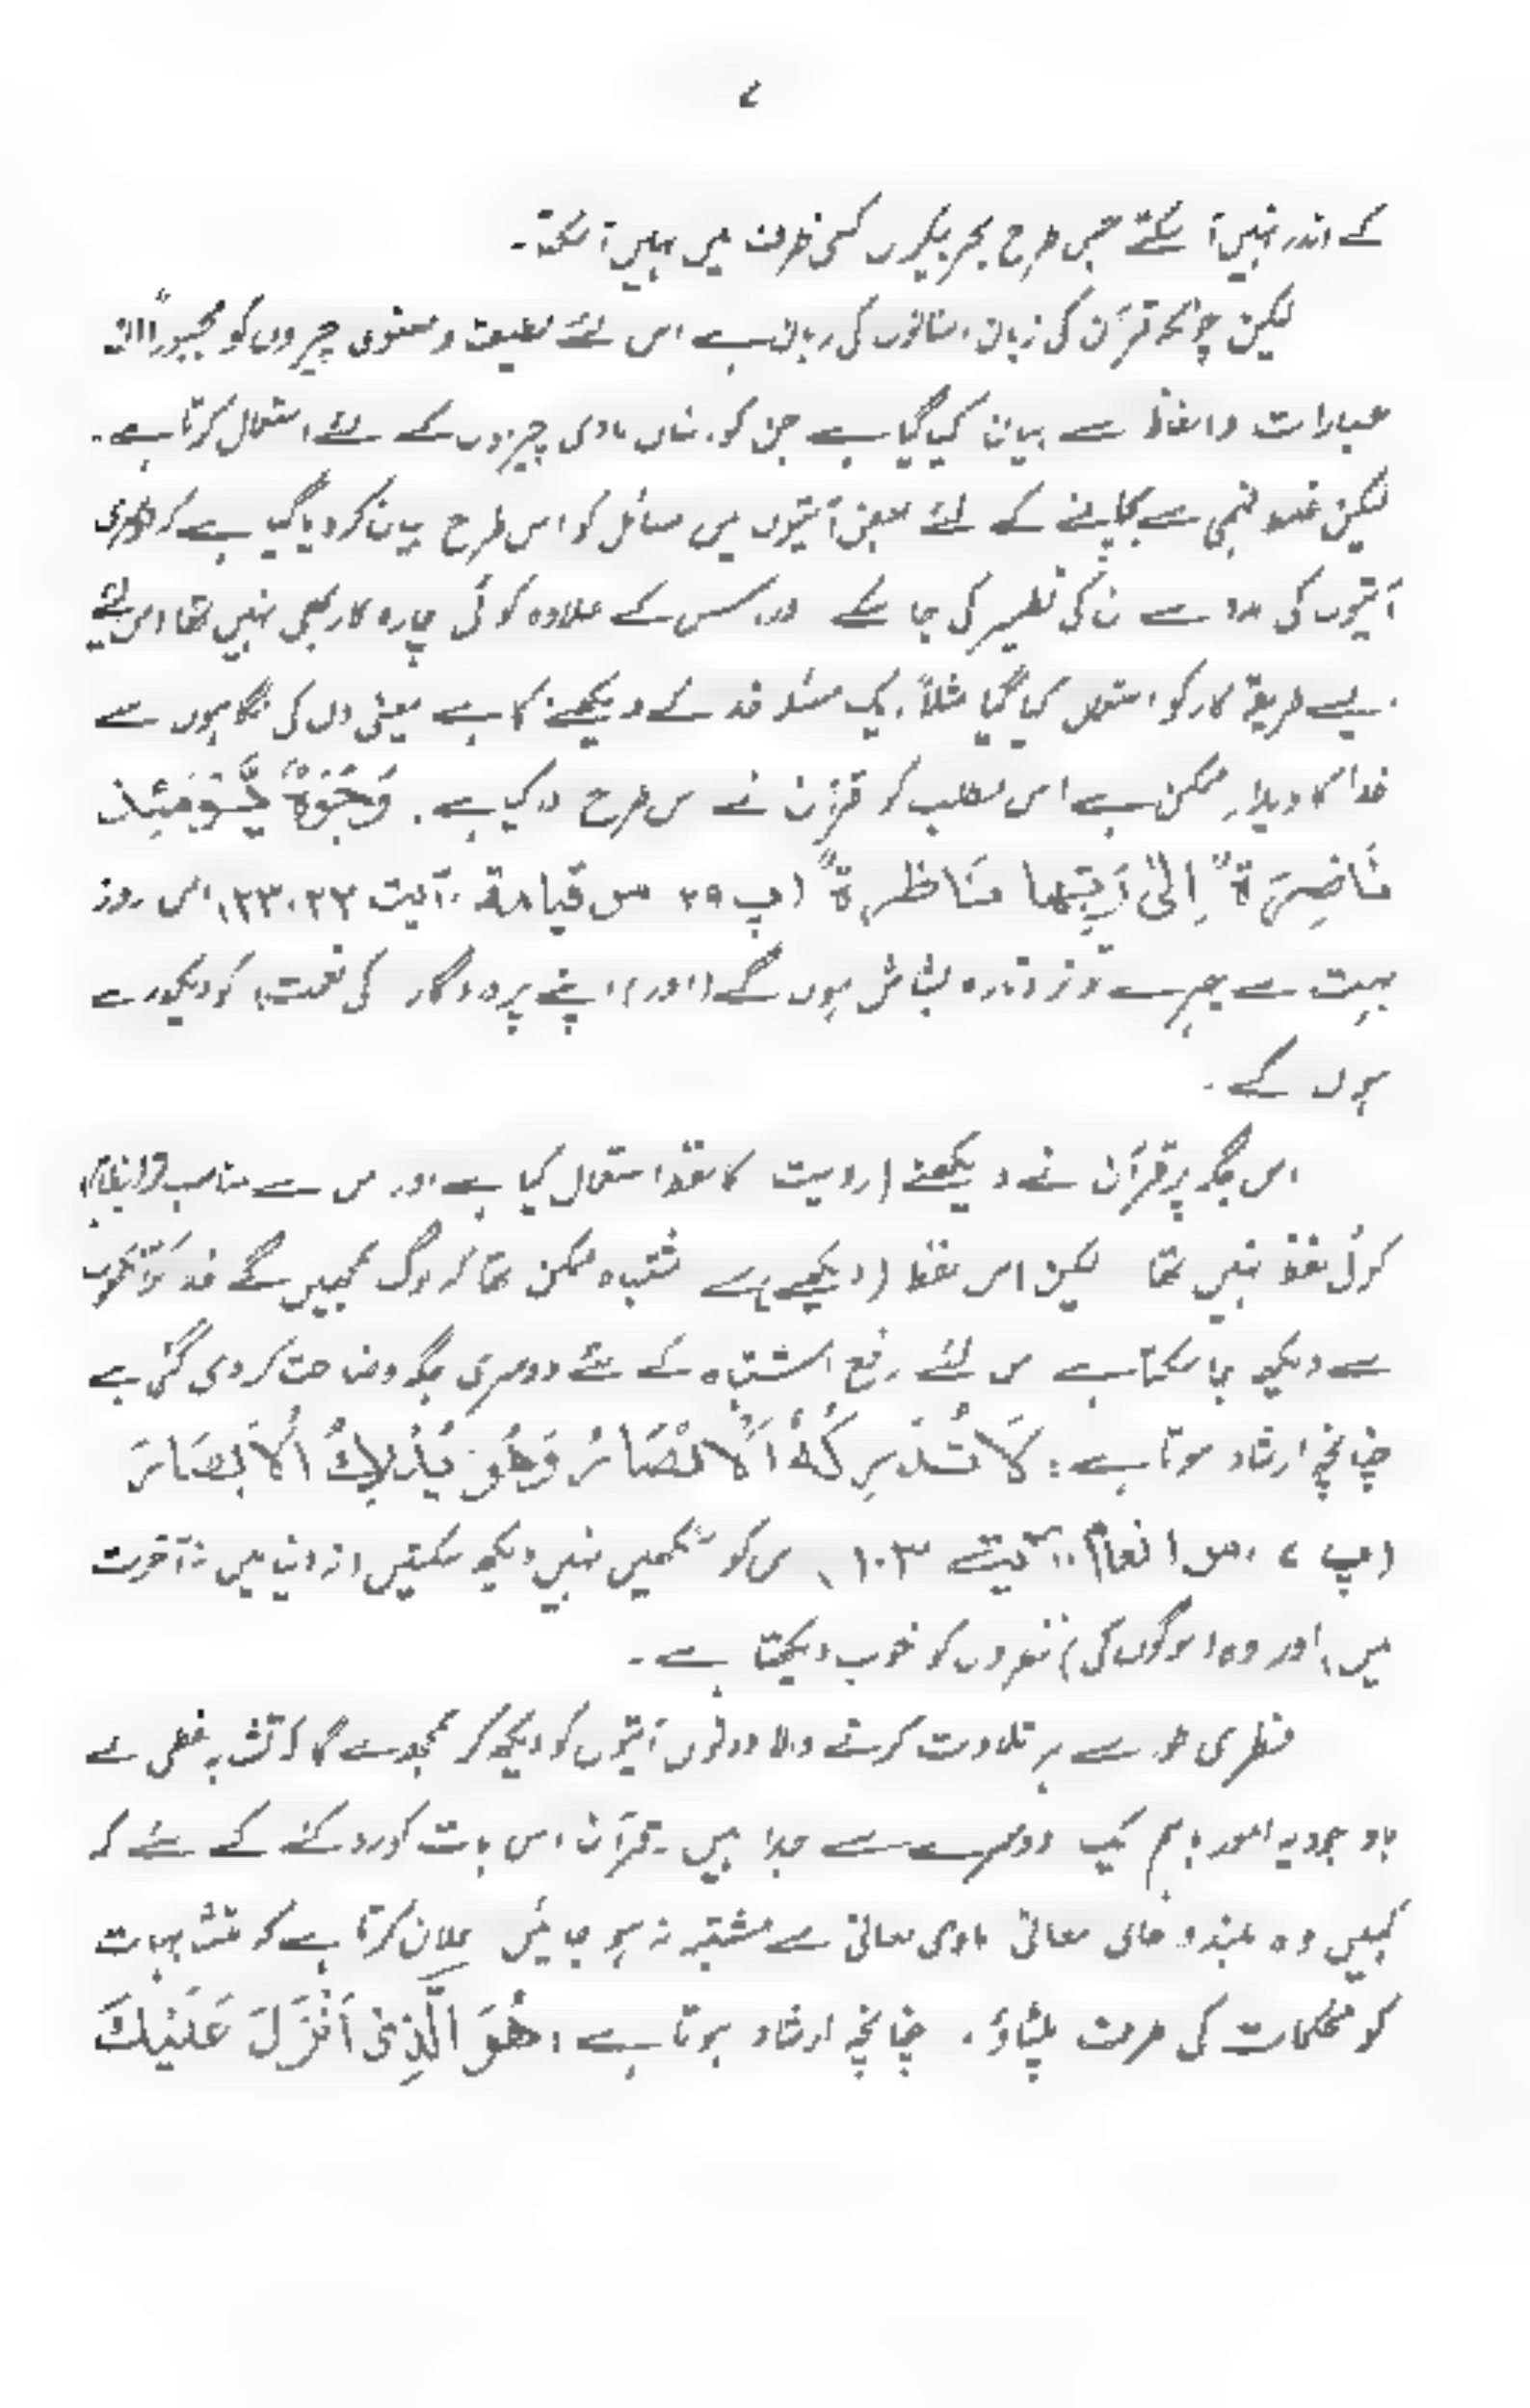 ۷
کے اندر نہیں آ سکتے جس طرح بحر بیکراں کسی ظرف میں نہیں آ سکتا۔
لیکن چونکہ قرآن کی زبان انسانوں کی زبان ہے اس لئے لطیف و معنوی چیزوں کو مجبوراً ان
عبارات و الفاظ سے بیان کیا گیا ہے جن کو انسان مادی چیزوں کے لئے استعمال کرتا ہے۔
لیکن غلط فہمی سے بچانے کے لئے بعض آیتوں میں مسائل کو اس طرح بیان کر دیا گیا ہے کہ دوسری
آیتوں کی مدد سے ان کی تفسیر کی جا سکے اور اس کے علاوہ کوئی چارہ کار بھی نہیں تھا اس لئے
ایسے طریقۂ کار کو استعمال کیا گیا مثلاً ایک مسئلہ خدا کے دیکھنے کا ہے یعنی دل کی نگاہوں سے
خدا کا دیدار ممکن ہے اس مطلب کو قرآن نے اس طرح ادا کیا ہے۔ وُجُوهٌ يَّوْمَئِذٍ
نَاضِرَةٌ إِلَىٰ رَبِّهَا نَاظِرَةٌ (پ ۲۹ س قیامة، آیت ۲۲، ۲۳) اس روز
بہت سے چہرے تر و تازہ بشاش ہوں گے (اور) اپنے پروردگار کی نعمت کو دیکھ رہے
ہوں گے۔
اس جگہ پر قرآن نے دیکھنے (رویت) کا لفظ استعمال کیا ہے اور اس سے مناسب
کوئی لفظ نہیں تھا لیکن اس لفظ (دیکھنے) سے اشتباہ ممکن تھا کہ لوگ سمجھیں گے خدا کو آنکھوں
سے دیکھا جا سکتا ہے اس لئے رفع اشتباہ کے لئے دوسری جگہ وضاحت کر دی گئی ہے
چنانچہ ارشاد ہوتا ہے: لَا تُدْرِكُهُ الْأَبْصَارُ وَهُوَ يُدْرِكُ الْأَبْصَارَ
(پ ۷، س انعام، آیت ۱۰۳) اس کو آنکھیں نہیں دیکھ سکتیں (نہ دنیا میں نہ آخرت
میں) اور وہ (لوگوں کی) نظروں کو خوب دیکھتا ہے۔
فطری طور سے ہر تلاوت کرنے والا دونوں آیتوں کو دیکھ کر سمجھ لے گا کہ تشابہ لفظی کے
باوجود یہ امور باہم ایک دوسرے سے جدا ہیں۔ قرآن اس بات کو روکنے کے لئے کہ
کہیں وہ بلند و عالی معانی مادی معانی سے مشتبہ نہ ہو جائیں اعلان کرتا ہے کہ متشابہات
کو محکمات کی طرف پلٹاؤ۔ چنانچہ ارشاد ہوتا ہے: هُوَ الَّذِي أَنْزَلَ عَلَيْكَ